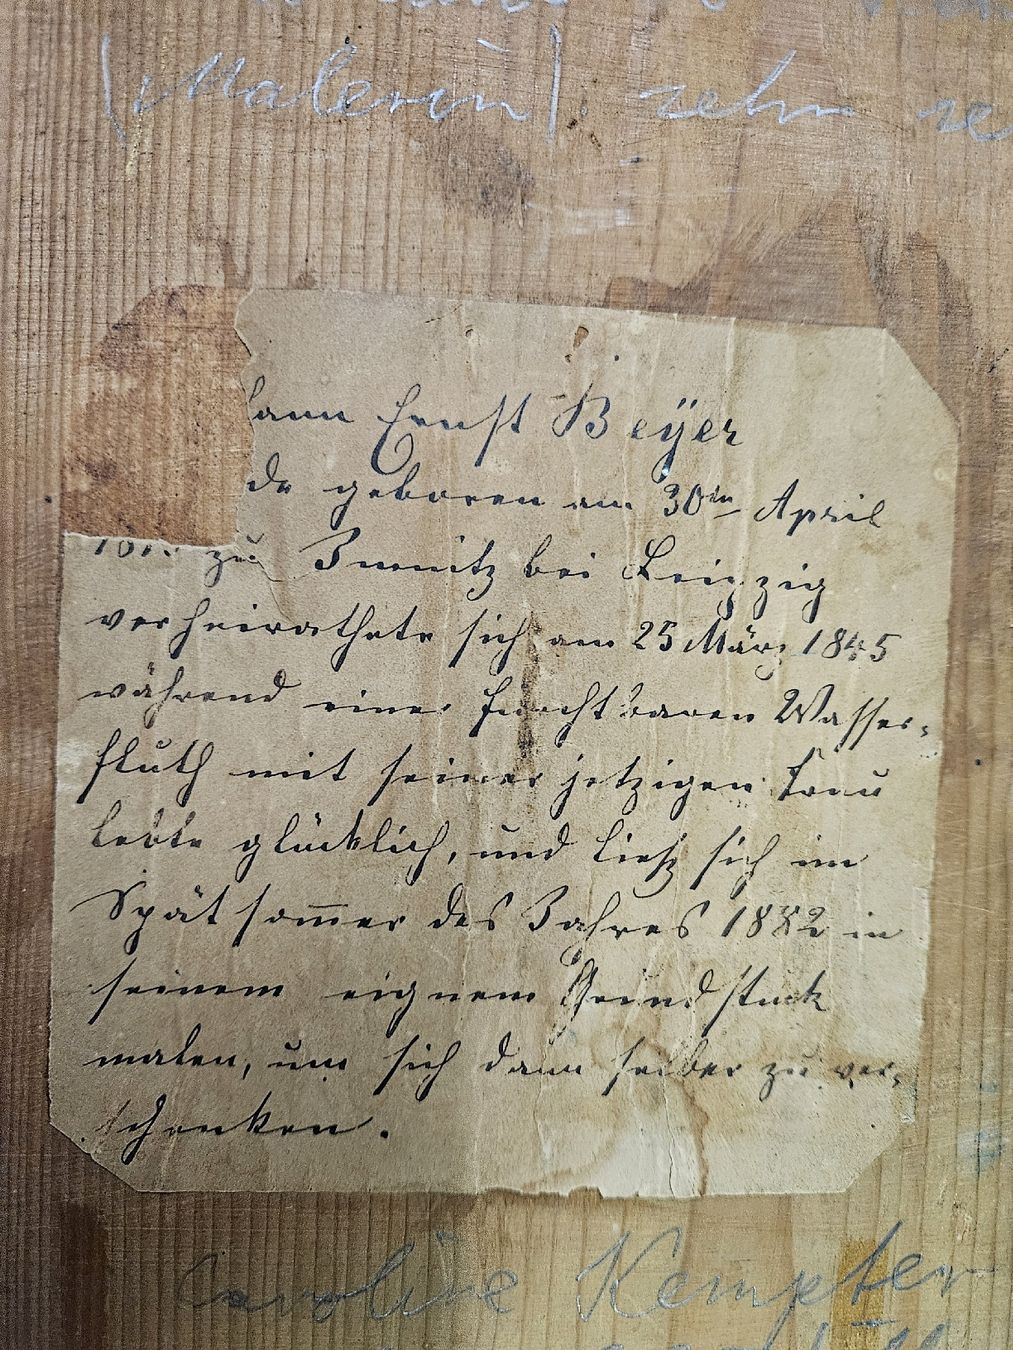 (Malerin) sehr se
hann Ernst Beÿer
de geboren am 30ten April
zu Zwenitz bei Leipzig
verheirathete sich am 25 März 1845
während einer furchtbaren Wasser-
fluth mit seiner jetzigen Frau
lebte glücklich, und ließ sich im
Spätsom̅er des Jahres 1882 in
seinem eignem Grundstück
malen, um sich dann selber zu ver-
schenken.
Caroline Kempter